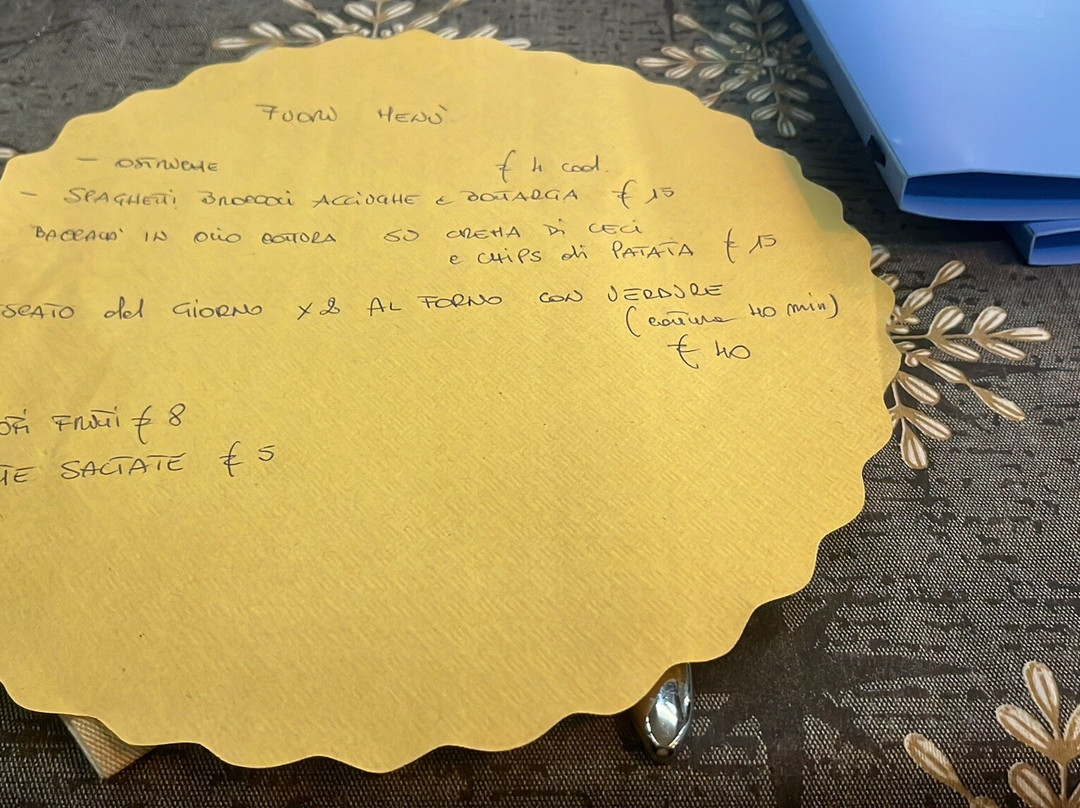 FUORI MENÙ
- OSTRICHE € 4 cad.
- SPAGHETTI BROCCOLI ACCIUGHE e BOTTARGA € 15
BACCALÀ IN OLIO COTTURA SU CREMA DI CECI
e CHIPS di PATATA € 15
SCATO del GIORNO x 2 AL FORNO CON VERDURE
(cottura 40 min)
€ 40
FRUTTI € 8
TE SALTATE € 5